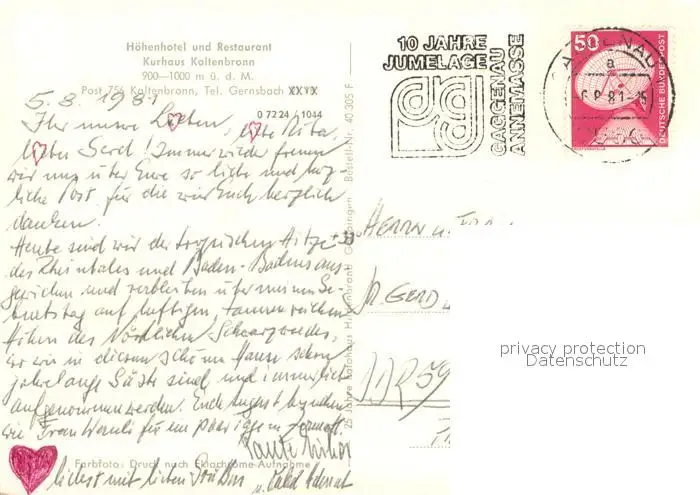 Höhenhotel und Restaurant
Kurhaus Kaltenbronn
900—1000 m ü. d. M.
Post 756 Kaltenbronn, Tel. Gernsbach XXYX
0 72 24 / 1044
5. 8. 1981
Ihr unsere Lieben, liebe
lieber Gerd! Immer wieder freuen
wir uns über Eure so liebe und herz-
liche Post, für die wir Euch herzlich
danken.
Heute sind wir der tropischen Hitze
des Rheintales und Baden-Badens aus-
gewichen und verbleiben über meinen Ge-
burtstag auf luftigen, tannenreichen
Höhen des Nördlichen Schwarzwaldes,
wo wir in diesem schönen Hause schon
jahrelange Gäste sind und immer lieb
aufgenommen werden. Ende August
wie Frau für ein paar Tage in
Tante
herzlichst mit lieben Grüßen
u.
Farbfoto: Druck nach Ektachrome-Aufnahme
25 Jahre Kurhaus Kaltenbronn Bestell-Nr. 40 305 F
10 JAHRE
JUMELAGE
GAGGENAU
ANNEMASSE
GAGGENAU
a
-6.8.81-15
50
DEUTSCHE BUNDESPOST
HERRN u.
Dr. GERD
DDR 59
privacy protection
Datenschutz